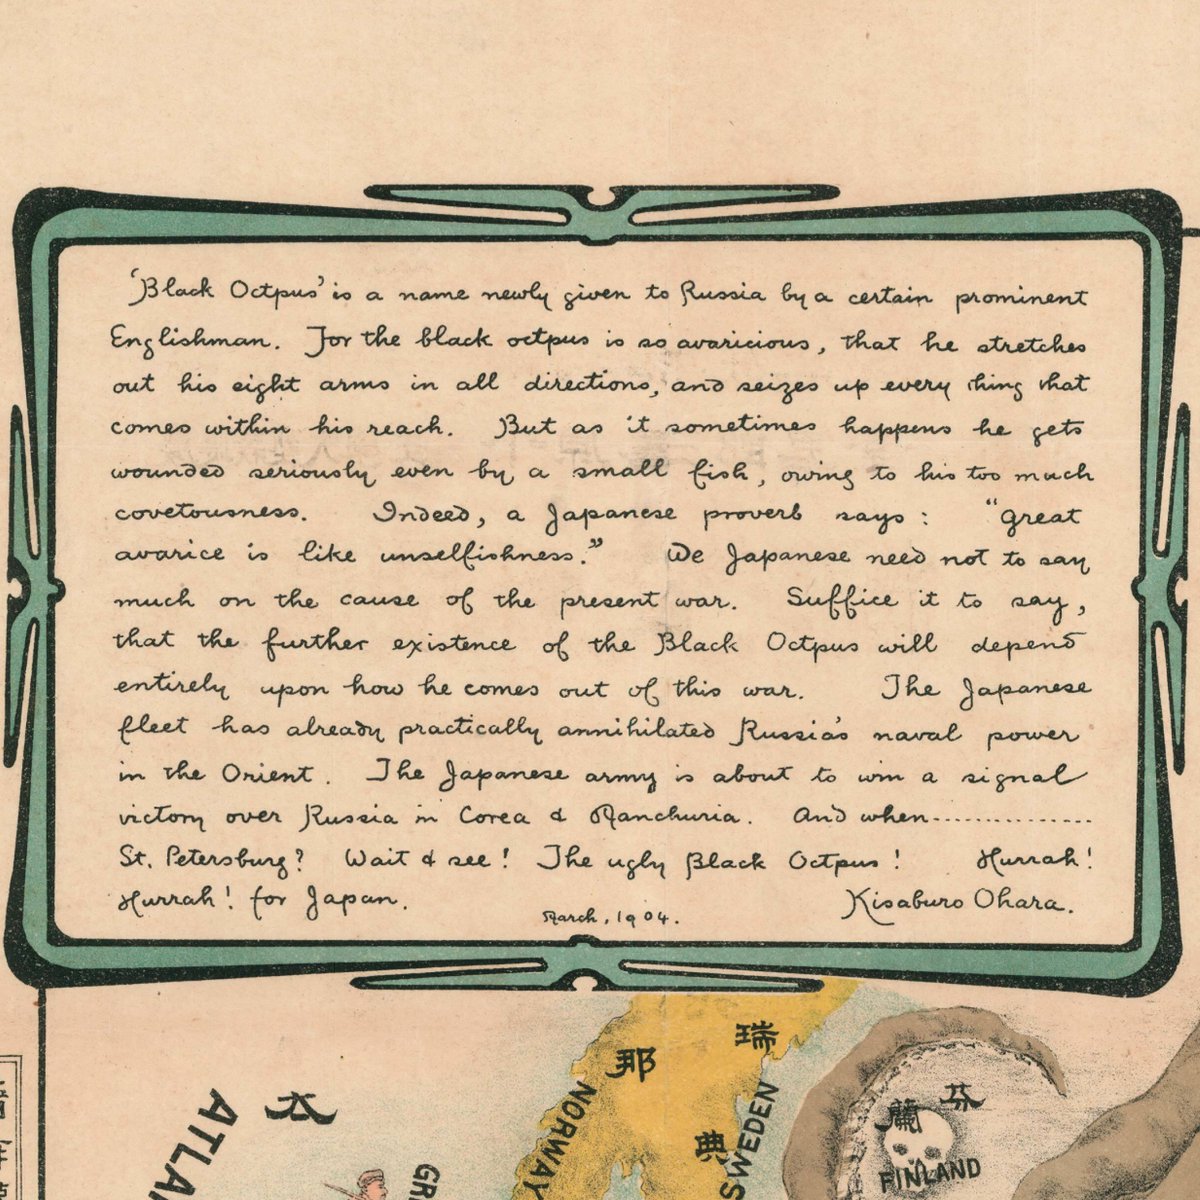 'Black Octpus' is a name newly given to Russia by a certain prominent
Englishman. For the black octpus is so avaricious, that he stretches
out his eight arms in all directions, and seizes up every thing that
comes within his reach. But as it sometimes happens he gets
wounded seriously even by a small fish, owing to his too much
covetousness. Indeed, a Japanese proverb says: "Great
avarice is like unselfishness." We Japanese need not to say
much on the cause of the present war. Suffice it to say,
that the further existence of the Black Octpus will depend
entirely upon how he comes out of this war. The Japanese
fleet has already practically annihilated Russia's naval power
in the Orient. The Japanese army is about to win a signal
victory over Russia in Corea & Manchuria. And when...............
St. Petersburg? Wait & see! The ugly Black Octpus! Hurrah!
Hurrah! for Japan. Kisaburo Ohara.
March, 1904.
瑞
那
大
芬
蘭
典
NORWAY
SWEDEN
FINLAND